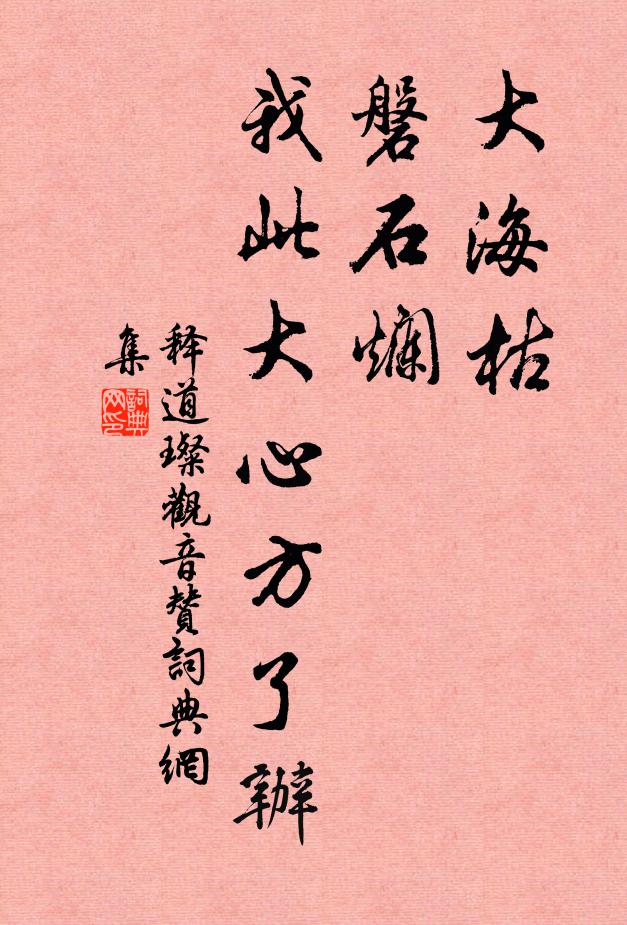 大海枯
磐石爛
我此大心方了辦
释道璨觀音賛詞典網
集
詞典
网印